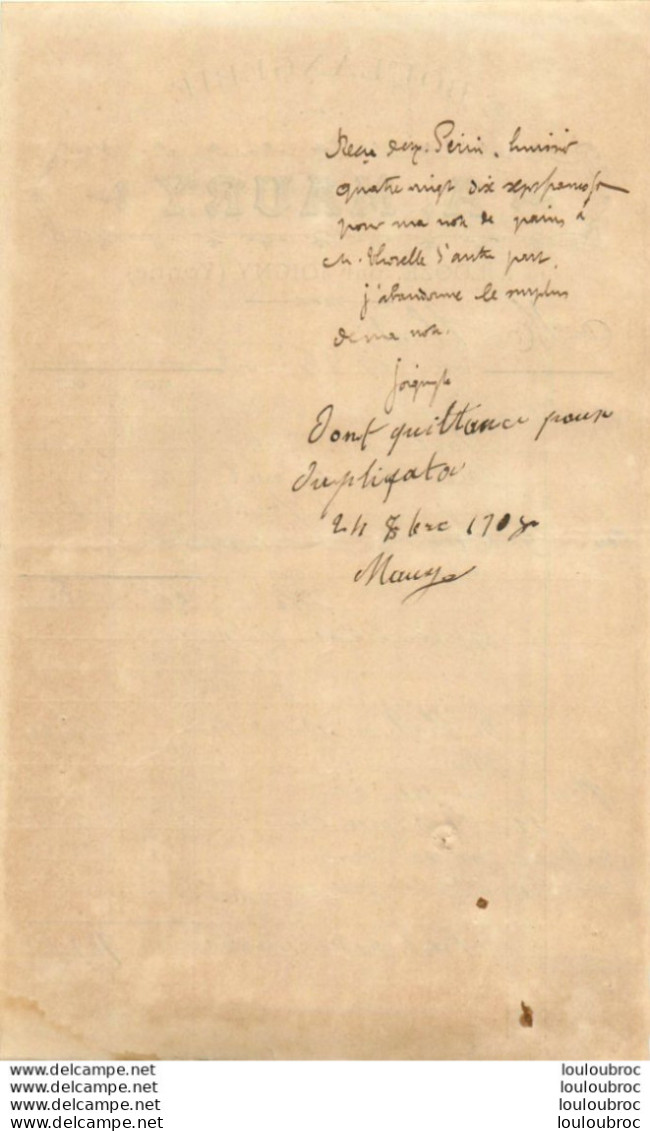 Reçu de M. Perin, huissier
quatre vingt dix sept francs
pour ma note de pains à
M. Thorelle d'autre part.
j'abandonne le surplus
de ma note.
Joigny le
dont quittance pour
duplicata
24 8bre 190
Maury
www.delcampe.net
www.delcampe.net
www.delcampe.net
www.delcampe.net
louloubroc
louloubroc
louloubroc
louloubroc